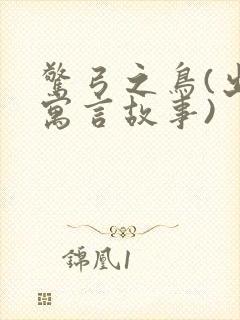 驚弓之鳥(出
寓言故事)
錦凰1